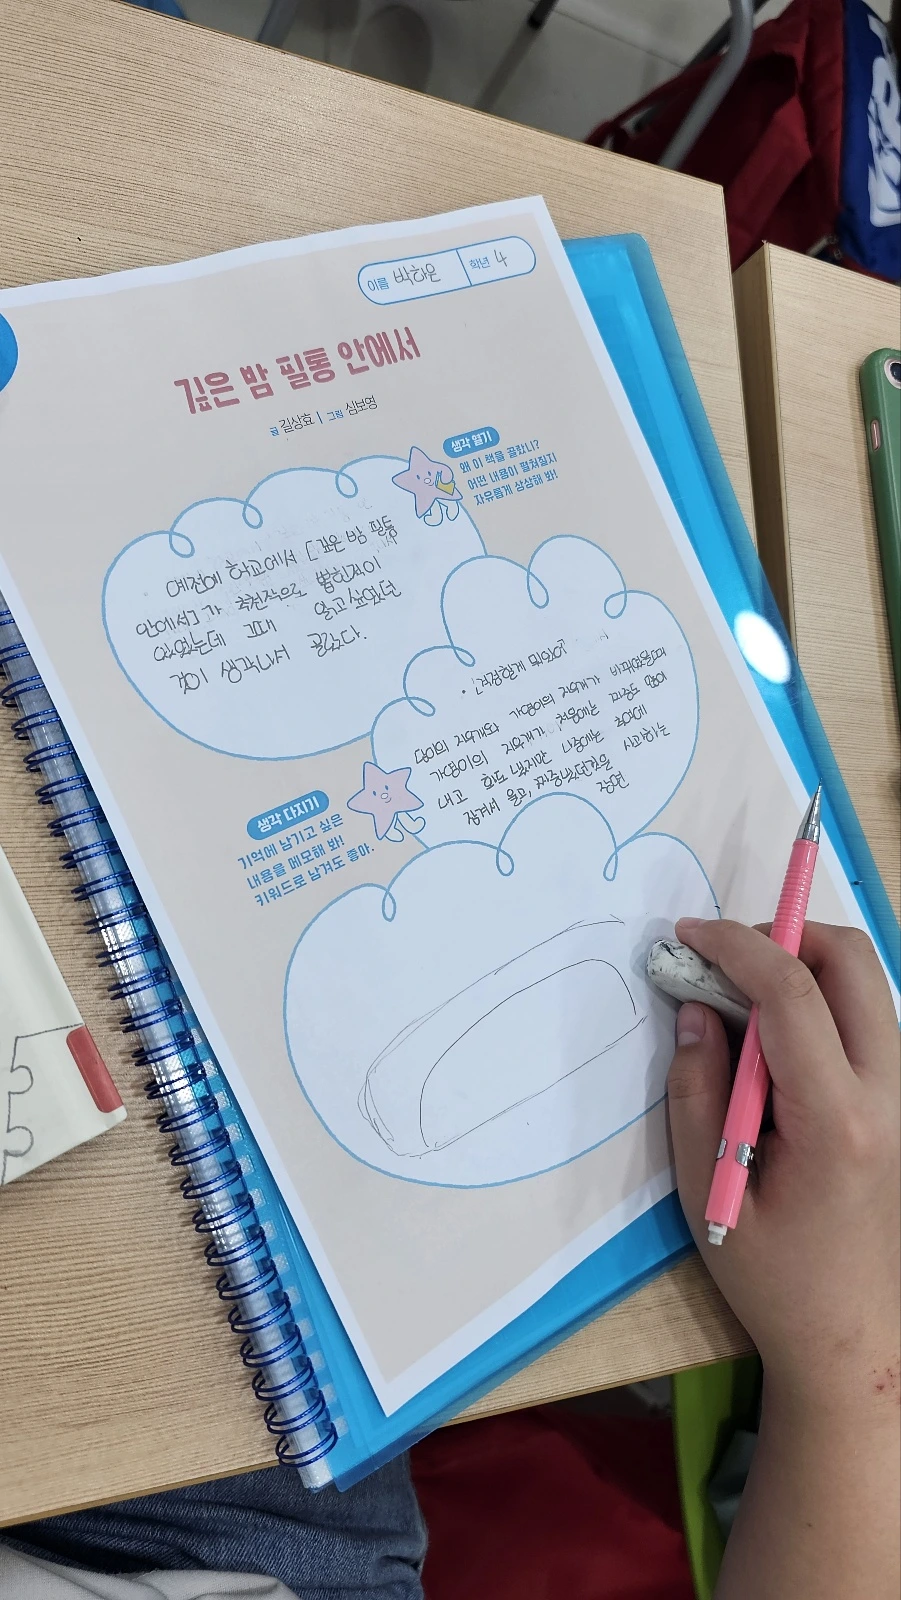 이름 박하은 학년 4
깊은 밤 필통 안에서
글 길상효 | 그림 심보영
생각 열기
왜 이 책을 골랐니?
어떤 내용이 펼쳐질지
자유롭게 상상해 봐!
예전에 학교에서 「깊은 밤 필통
안에서」가 추천작으로 뽑힌적이
있었는데 그때 읽고 싶었던
것이 생각나서 골랐다.
생각 다지기
기억에 남기고 싶은
내용을 메모해 봐!
키워드로 남겨도 좋아.
담이의 지우개와 가영이의 지우개가 바뀌었을때
가영이의 지우개가 처음에는 짜증도 많이
내고 화도 냈지만 나중에는
잠겨서 울고, 짜증냈던것을 사과하는
장면
5
5